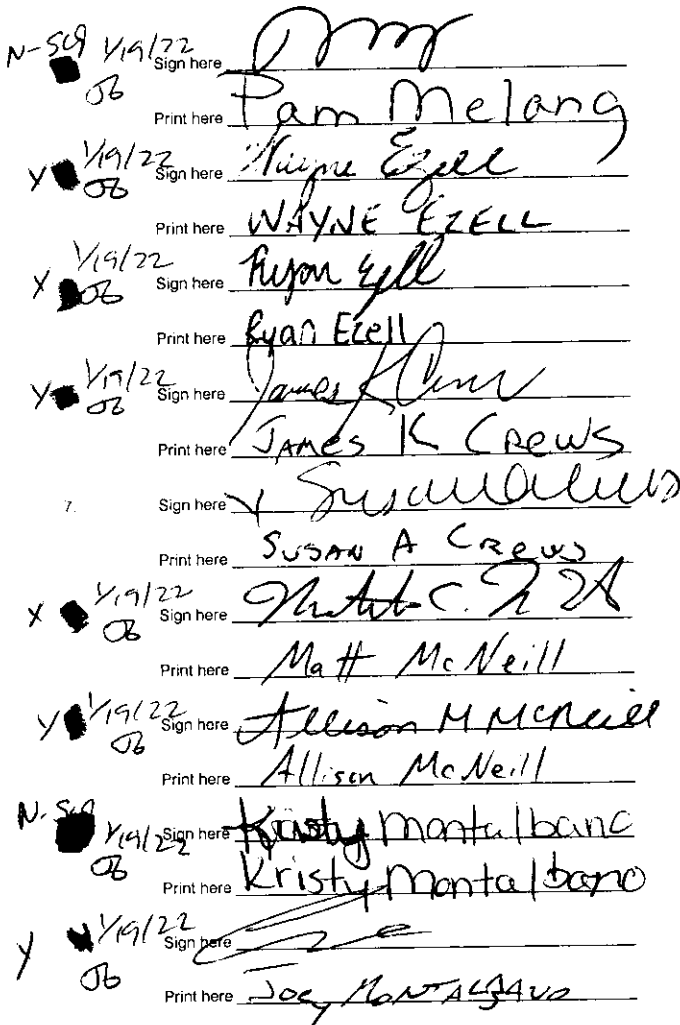 N-SC9 1/19/22 Sign here
OB
Print here Pam Melang
Y 1/19/22 Sign here Wayne Ezell
OB
Print here WAYNE EZELL
X 1/19/22 Sign here Ryan Ezell
OB
Print here Ryan Ezell
Y 1/19/22 Sign here James K Crews
OB
Print here JAMES K CREWS
7. Sign here Susan A Crews
Print here SUSAN A CREWS
X 1/19/22 Sign here
OB
Print here Matt McNeill
Y 1/19/22 Sign here Allison M McNeill
OB
Print here Allison McNeill
N-SC9 1/19/22 Sign here Kristy Montalbano
OB
Print here Kristy Montalbano
Y 1/19/22 Sign here
OB
Print here Joey MONTALBANO